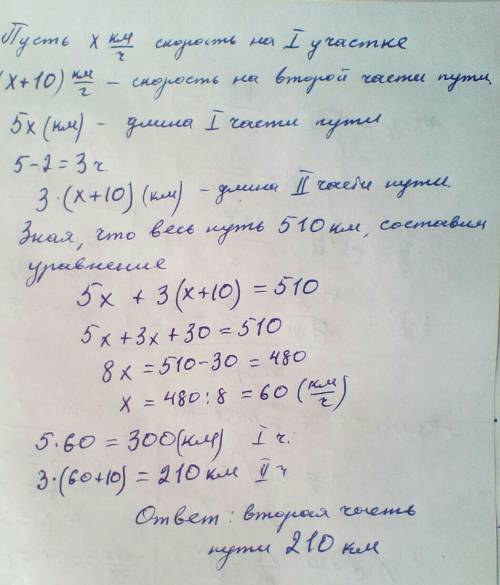 Пусть x км/ч скорость на I участке
(x+10) км/ч – скорость на второй части пути
5x (км) – длина I части пути
5-2=3 ч.
3·(x+10) (км) – длина II части пути.
Зная, что весь путь 510 км, составим
уравнение
5x + 3(x+10) = 510
5x+3x+30=510
8x = 510-30 = 480
x = 480:8 = 60 (км/ч)
5·60 = 300 (км) I ч.
3·(60+10) = 210 км II ч
Ответ: вторая часть
пути 210 км